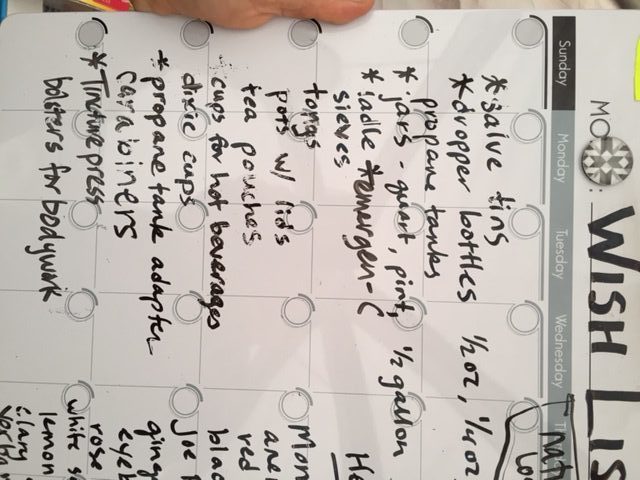 MO :
WISH LIS
Sunday Monday Tuesday Wednesday T
*salve tins
*dropper bottles ½oz, ¼oz
propane tanks
*jars - quart, pint, ½ gallon
*ladle *emergen-C
sieves
tongs
pots w/ lids
tea pouches
cups for hot beverages
dixie cups
*propane tank adapter
carabiners
*Tincture press
bolsters for bodywork
nati
lo
He
Mon
are
red
blac
Joe
ging
eyeb
rose
white s
lemon
clary